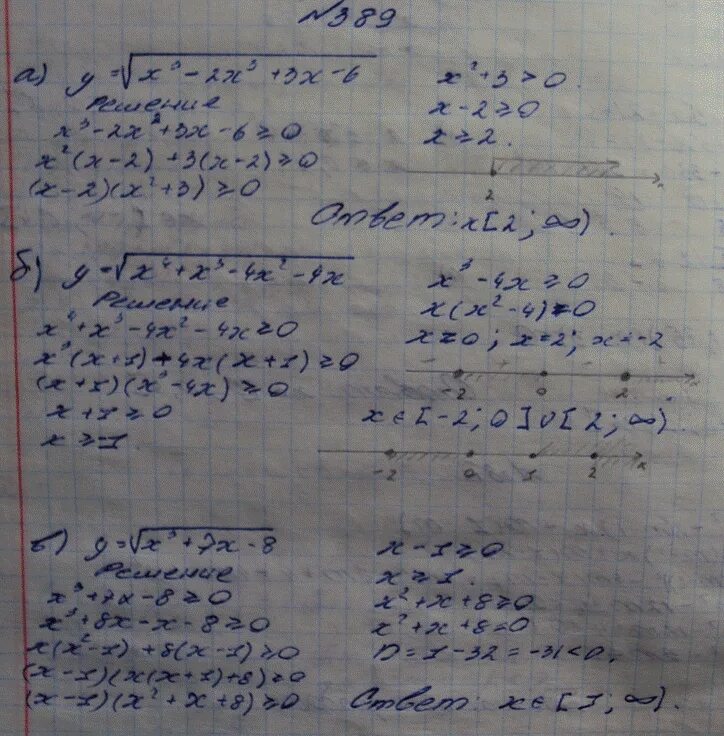 №389
а) y=√x³-2x³+3x-6
Решение
x³-2x²+3x-6≥0
x²(x-2)+3(x-2)≥0
(x-2)(x²+3)≥0
x²+3>0.
x-2≥0
x≥2.
2
Ответ: x[2; ∞)
б) y=√x⁴+x³-4x²-4x
Решение
x⁴+x³-4x²-4x≥0
x³(x+1)-4x(x+1)≥0
(x+1)(x³-4x)≥0
x+1≥0
x≥-1
x³-4x≥0
x(x²-4)=0
x=0; x=2; x=-2
- + - +
-2 0 2
x∈[-2; 0]∪[2; ∞).
-2 0 1 2 x
в) y=√x³+7x-8
Решение
x³+7x-8≥0
x³+8x-x-8≥0
x(x²-1)+8(x-1)≥0
(x-1)(x(x+1)+8)≥0
(x-1)(x²+x+8)≥0
x-1≥0
x≥1.
x²+x+8≥0
x²+x+8=0
D=1-32=-31<0.
Ответ: x∈[1; ∞).